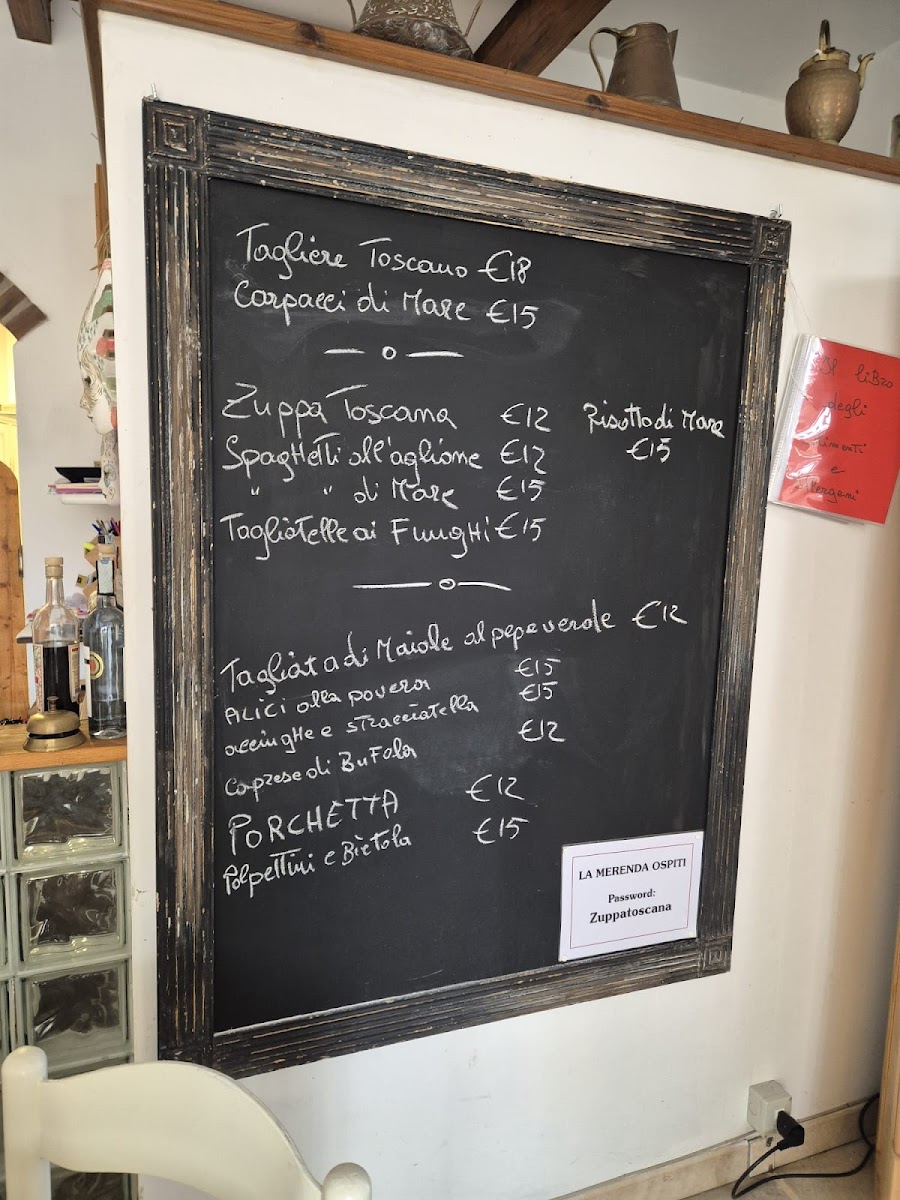 Tagliere Toscano €18
Carpacci di Mare €15
Zuppa Toscana €12
Spaghetti all'aglione €12
" " di Mare €15
Tagliatelle ai Funghi €15
Risotto di Mare
€15
Tagliata di Maiale al pepe verde €12
Alici alla povera €15
acciughe e stracciatella €15
Caprese di Bufala €12
PORCHETTA €12
Polpettini e Bietola €15
LA MERENDA OSPITI
Password:
Zuppatoscana
liBro
degli
e